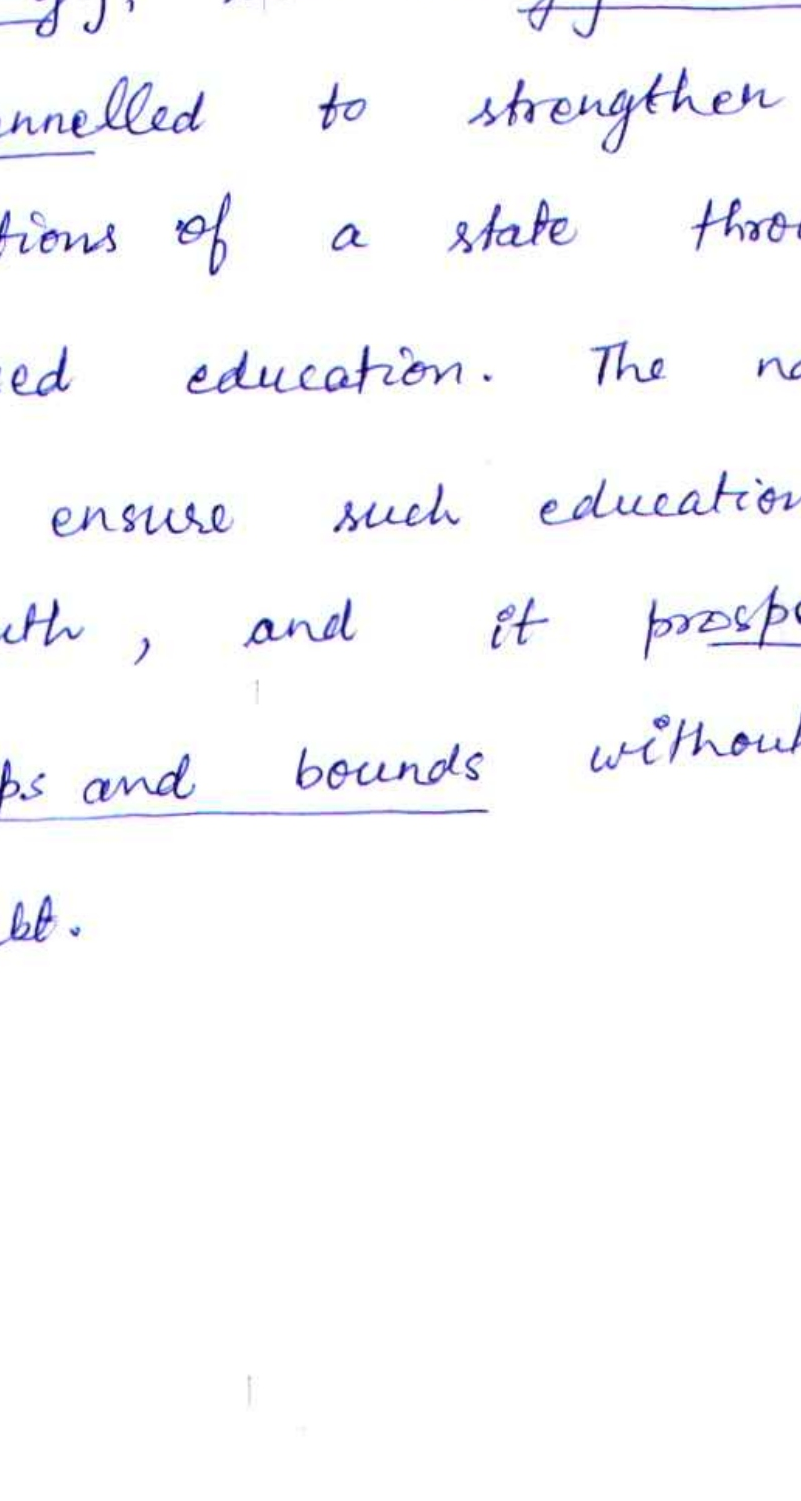 nnelled to strengthen
tions of a state thro
ed education. The na
ensure such education
uth, and it prospe
ps and bounds without
bt.